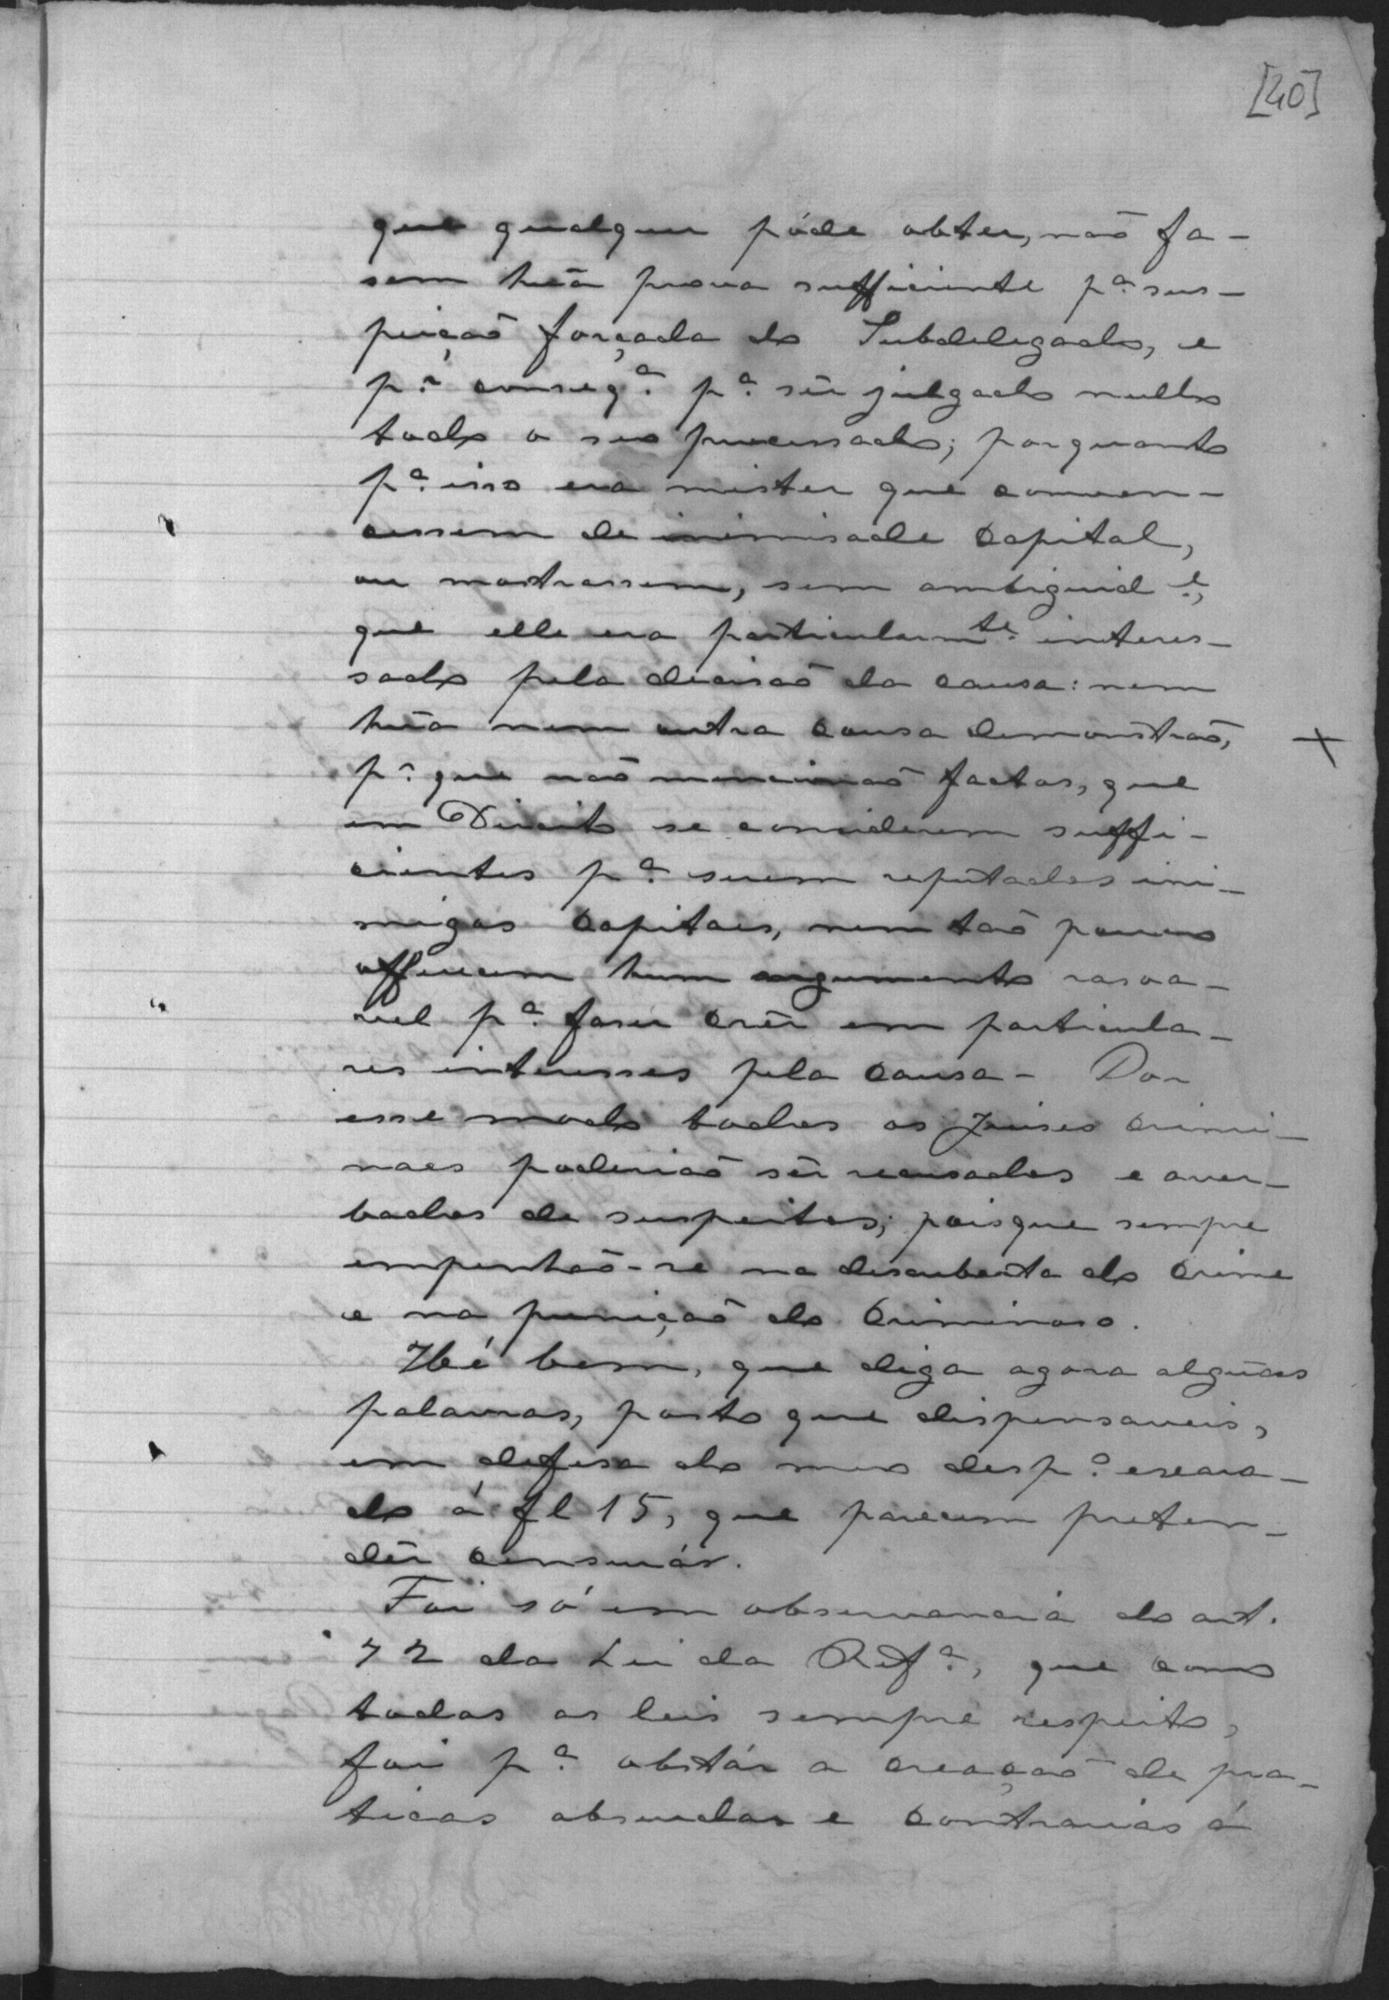 [40]
que qualquer póde obter, não fa-
sem hũa prova sufficiente pª sus-
peição forçada do Subdelegado, e
pʳ conseqª pª sêr julgado nullo
todo o seo processado; porquanto
pª isso era mister que conven-
cessem de inimisade Capital,
ou mostrassem, sem ambiguidᵉ,
que elle era particularmᵗᵉ interes-
sado pela decisão da causa: nem
hũa nem outra causa demonstrão,
pʳ que não mencionão factos, que
em Direito se considerem suffi-
cientes pª serem reputados ini-
migos Capitaes, nem tão pouco
offerecem hum argumento rasoa-
vel pª faser crêr em particula-
res interesses pela causa - Por
esse modo todos os Juises crimi-
naes poderião sêr recusados e aver-
bados de suspeitos; poisque sempre
empenhão-se na descuberta do crime
e na punição do Criminoso.
Hé bem, que diga agora algũas
palavras, posto que dispensaveis,
em defesa do meo despº exara-
do á fl 15, que parecem preten-
dêr censurár.
Foi só em observancia do art.
72 da Lei da Refª, que como
todas as leis sempre respeito,
foi pª obstár a creação de pra-
ticas absurdas e contrarias á